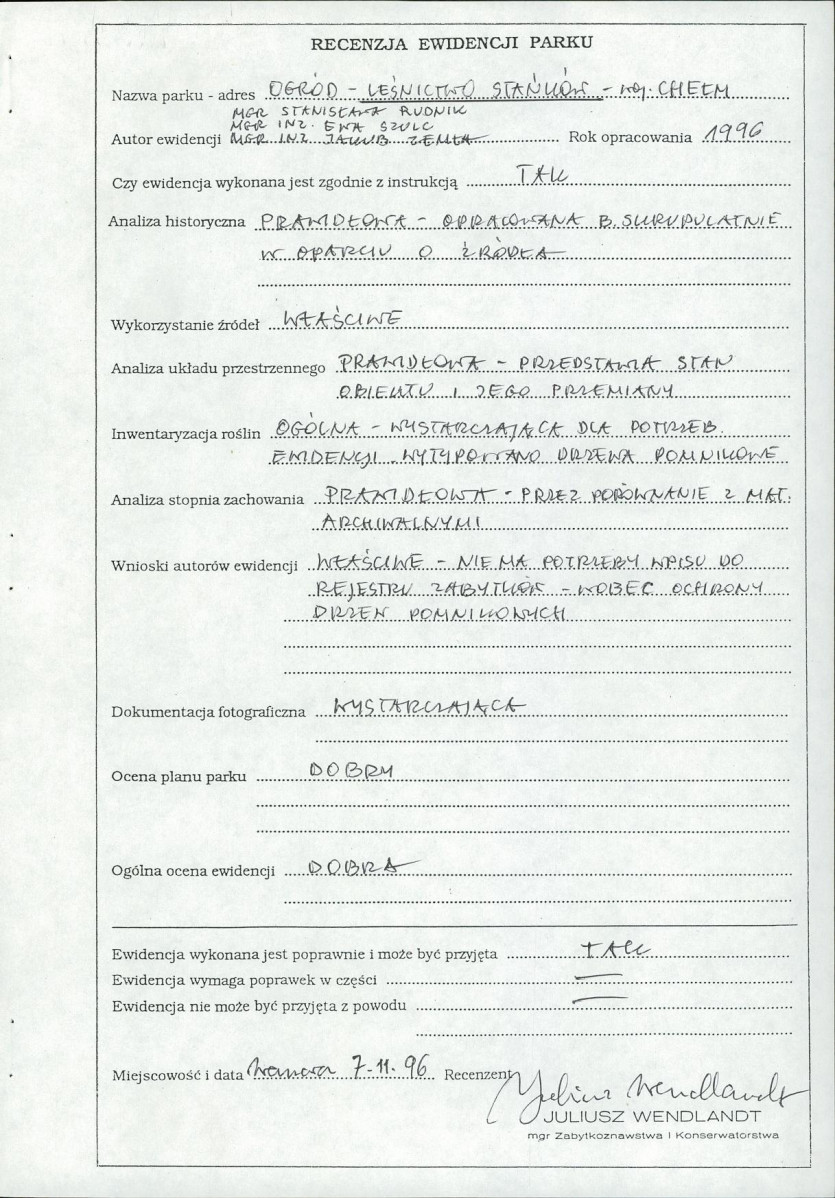 RECENZJA EWIDENCJI PARKU
Nazwa parku - adres OGRÓD - LEŚNICTWO STAŃKÓW - woj. CHEŁM
MGR STANISŁAWA RUDNIK
MGR INŻ. EWA SZULC
Autor ewidencji MGR INŻ JAKUB ZEMŁA Rok opracowania 1996
Czy ewidencja wykonana jest zgodnie z instrukcją TAK
Analiza historyczna PRAWIDŁOWA - OPRACOWANA B. SKRUPULATNIE
W OPARCIU O ŹRÓDŁA
Wykorzystanie źródeł WŁAŚCIWE
Analiza układu przestrzennego PRAWIDŁOWA - PRZEDSTAWIA STAN
OBIEKTU I JEGO PRZEMIANY
Inwentaryzacja roślin OGÓLNA - WYSTARCZAJĄCA DLA POTRZEB
EWIDENCJI WYTYPOWANO DRZEWA POMNIKOWE
Analiza stopnia zachowania PRAWIDŁOWA - PRZEZ PORÓWNANIE Z MAT.
ARCHIWALNYMI
Wnioski autorów ewidencji WŁAŚCIWE - NIE MA POTRZEBY WPISU DO
REJESTRU ZABYTKÓW - WOBEC OCHRONY
DRZEW POMNIKOWYCH
Dokumentacja fotograficzna WYSTARCZAJĄCA
Ocena planu parku DOBRY
Ogólna ocena ewidencji DOBRA
Ewidencja wykonana jest poprawnie i może być przyjęta TAK
Ewidencja wymaga poprawek w części —
Ewidencja nie może być przyjęta z powodu —
Miejscowość i data Warszawa 7-11.96 Recenzent Juliusz Wendlandt
JULIUSZ WENDLANDT
mgr Zabytkoznawstwa i Konserwatorstwa